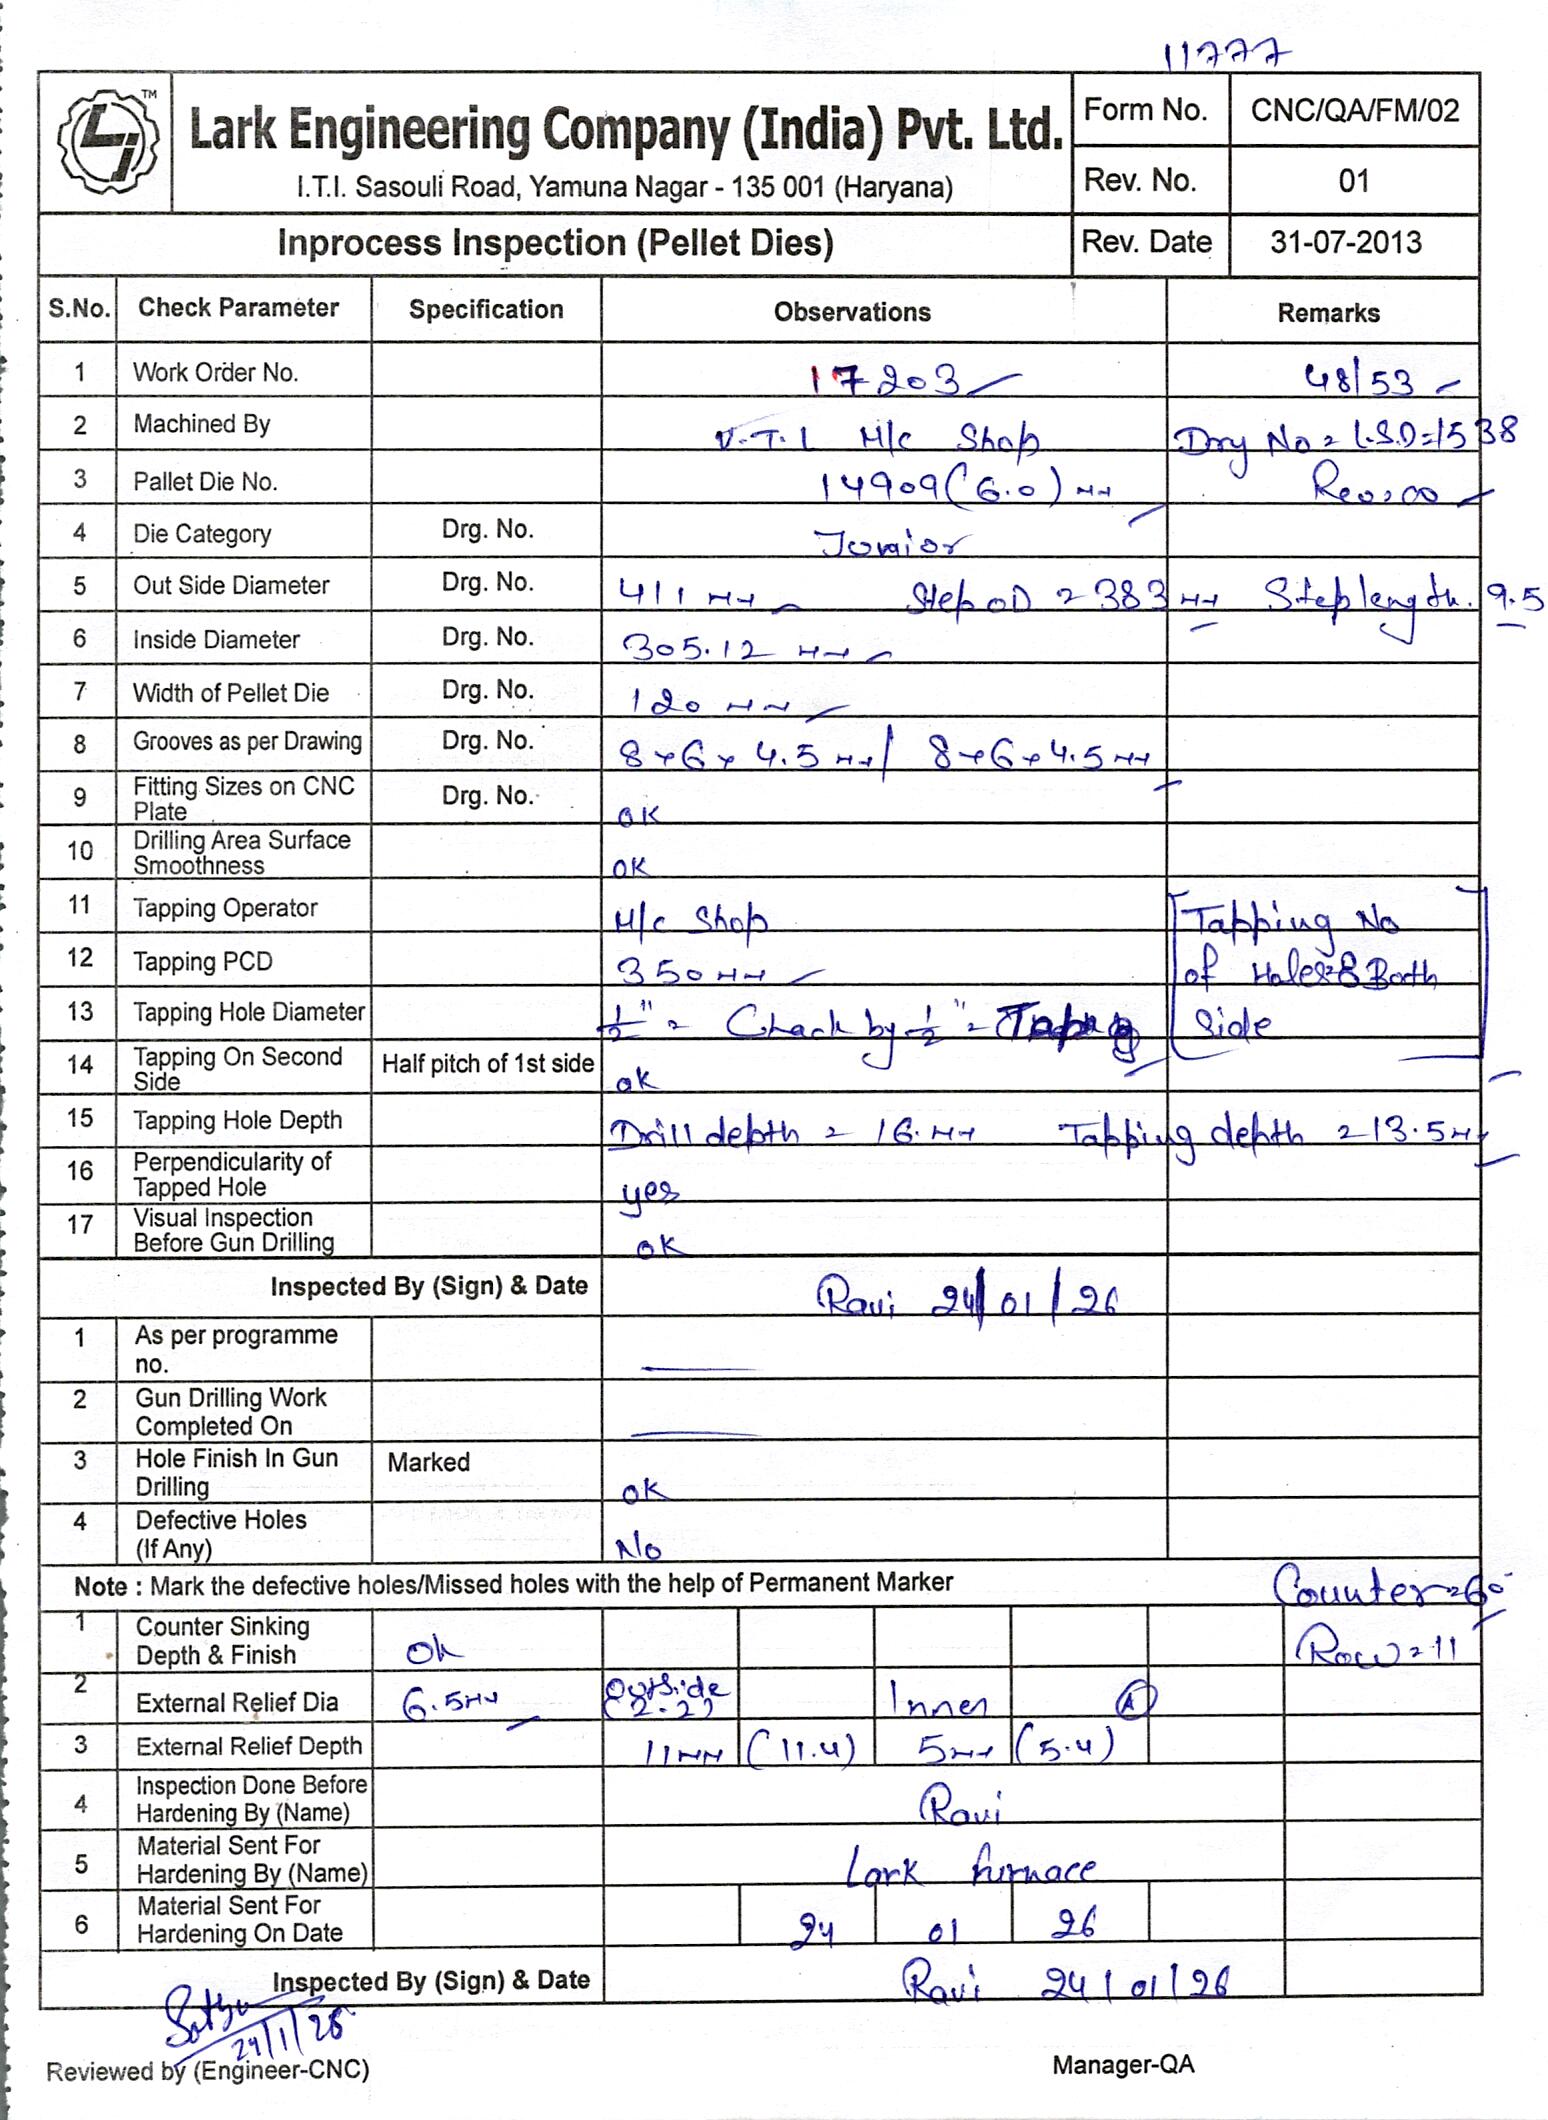 11777
TM
Lark Engineering Company (India) Pvt. Ltd.
I.T.I. Sasouli Road, Yamuna Nagar - 135 001 (Haryana)
Form No. CNC/QA/FM/02
Rev. No. 01
Inprocess Inspection (Pellet Dies) Rev. Date 31-07-2013
S.No. Check Parameter Specification Observations Remarks
1 Work Order No. 17203 48/53
2 Machined By V.T.L M/c Shop Drg No = L.S.D=1538
3 Pallet Die No. 14909 (6.0) mm Rev=00
4 Die Category Drg. No. Junior
5 Out Side Diameter Drg. No. 411 mm Step OD = 383 mm Step length. 9.5
6 Inside Diameter Drg. No. 305.12 mm
7 Width of Pellet Die Drg. No. 120 mm
8 Grooves as per Drawing Drg. No. 8×6×4.5 mm / 8×6×4.5 mm
9 Fitting Sizes on CNC Plate Drg. No. OK
10 Drilling Area Surface Smoothness OK
11 Tapping Operator M/c Shop Tapping No
12 Tapping PCD 350 mm of Holes=8 Both
13 Tapping Hole Diameter 1/2" = Chack by 1/2" = Tapping Side
14 Tapping On Second Side Half pitch of 1st side ok
15 Tapping Hole Depth Drill depth = 16. mm Tapping depth = 13.5 mm
16 Perpendicularity of Tapped Hole yes
17 Visual Inspection Before Gun Drilling OK
Inspected By (Sign) & Date Ravi 24/01/26
1 As per programme no.
2 Gun Drilling Work Completed On
3 Hole Finish In Gun Drilling Marked OK
4 Defective Holes (If Any) No
Note : Mark the defective holes/Missed holes with the help of Permanent Marker Counter=60°
1 Counter Sinking Depth & Finish Ok Row=11
2 External Relief Dia 6.5mm Outside (2.2) Inner A
3 External Relief Depth 11mm (11.4) 5mm (5.4)
4 Inspection Done Before Hardening By (Name) Ravi
5 Material Sent For Hardening By (Name) Lark furnace
6 Material Sent For Hardening On Date 24 01 26
Inspected By (Sign) & Date Ravi 24/01/26
24/1/26
Reviewed by (Engineer-CNC) Manager-QA